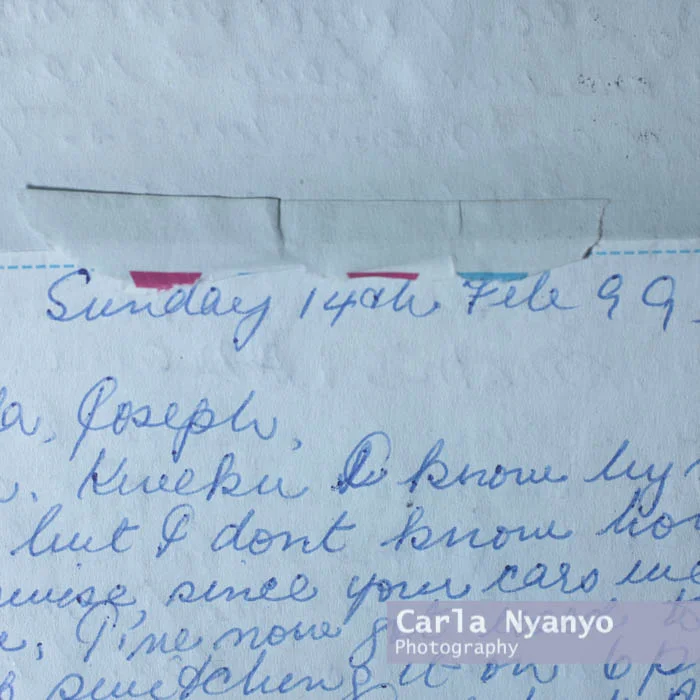 Sunday 14th Feb 99.
a, Joseph,
. Kweku I know by
but I dont know ho
wise, since your card we
e. I've now g
switching it on 6 p
Carla Nyanyo
Photography